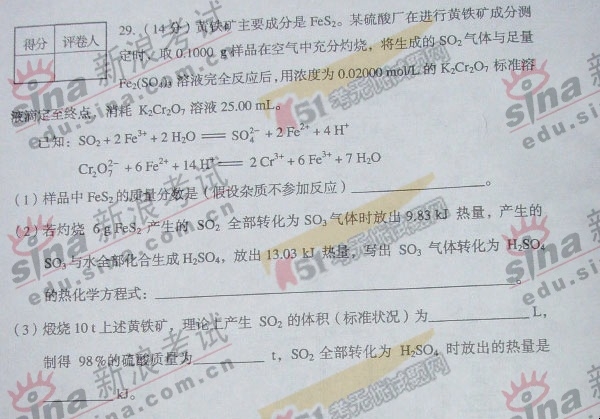 得分 评卷人
29.（14分）黄铁矿主要成分是 FeS₂。某硫酸厂在进行黄铁矿成分测
定时、取 0.1000 g样品在空气中充分灼烧，将生成的 SO₂气体与足量
Fe₂(SO₄)₃ 溶液完全反应后，用浓度为 0.02000 mol/L 的 K₂Cr₂O₇ 标准溶
液滴定至终点，消耗 K₂Cr₂O₇ 溶液 25.00 mL。
已知：SO₂ + 2 Fe³⁺ + 2 H₂O ══ SO₄²⁻ + 2 Fe²⁺ + 4 H⁺
Cr₂O₇²⁻ + 6 Fe²⁺ + 14 H⁺ ══ 2 Cr³⁺ + 6 Fe³⁺ + 7 H₂O
（1）样品中 FeS₂ 的质量分数是（假设杂质不参加反应）________________。
（2）若灼烧 6 g FeS₂ 产生的 SO₂ 全部转化为 SO₃ 气体时放出 9.83 kJ 热量，产生的
SO₃ 与水全部化合生成 H₂SO₄，放出 13.03 kJ 热量，写出 SO₃ 气体转化为 H₂SO₄
的热化学方程式：________________________________。
（3）煅烧 10 t 上述黄铁矿，理论上产生 SO₂ 的体积（标准状况）为____________L，
制得 98%的硫酸质量为__________ t，SO₂ 全部转化为 H₂SO₄ 时放出的热量是
__________kJ。
sina 新浪考试
edu.sina.com.cn
51考无忧试题网